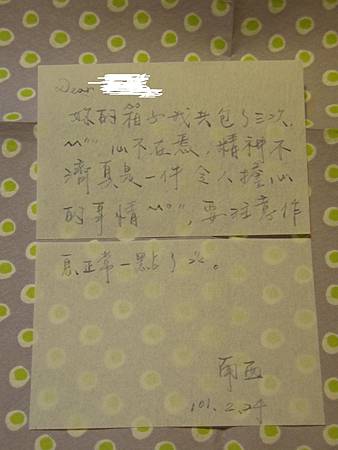 Dear
妳的箱子我共包了三次,
心不在焉,精神不
濟真是一件令人擔心
的事情,要注意作
息正常一點了
南西
101.2.24